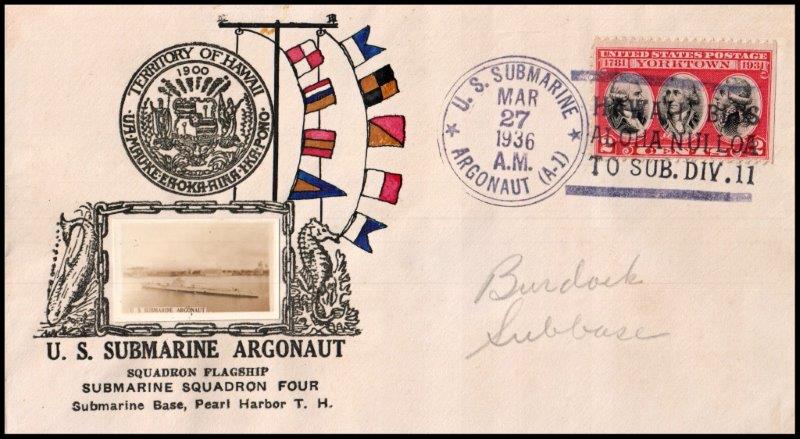 TERRITORY OF HAWAII
1900
UA·MAUKE·EA·OKA·AINA·IKA·PONO·
U. S. SUBMARINE ARGONAUT
U. S. SUBMARINE ARGONAUT
SQUADRON FLAGSHIP
SUBMARINE SQUADRON FOUR
Submarine Base, Pearl Harbor T. H.
U. S. SUBMARINE
MAR
27
1936
A.M.
ARGONAUT (A-1)
UNITED STATES POSTAGE
1781 YORKTOWN 1931
2 2
HAWAII BIDS
ALOHA NUI LOA
TO SUB. DIV. 11
Burdock
Subbase